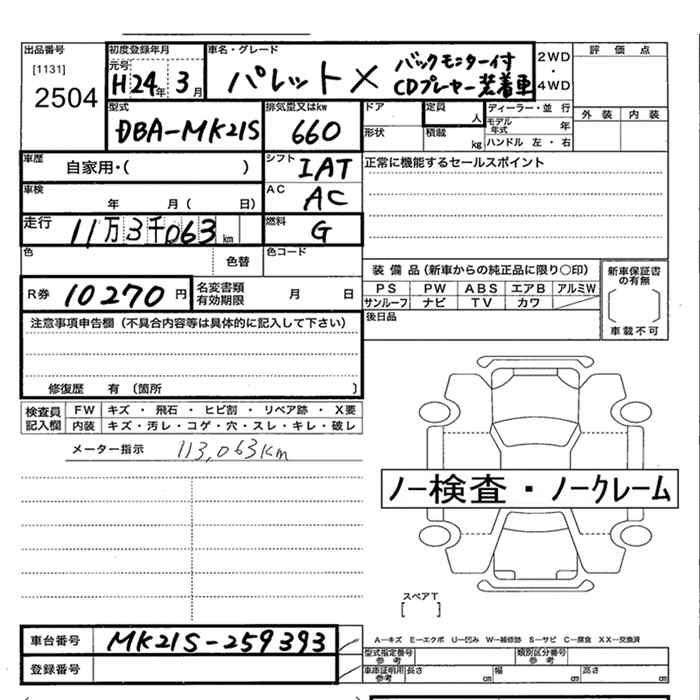 出品番号 初度登録年月 車名・グレード 評価点
[1131] 元号 バックモニター付 2WD
2504 H24年 3月 パレット X CDプレヤー装着車 ・ 4WD
外装 内装
型式 排気量又はkw ドア 定員 人 ディーラー・並行
DBA-MK21S 660 形状 積載 kg モデル年式 年
ハンドル 左・右
車歴 自家用・( ) シフト IAT 正常に機能するセールスポイント
車検 年 月( 日) AC AC
走行 11万3千063km 燃料 G
色 色替 色コード
装備品(新車からの純正品に限り○印) 新車保証書の有無
R券 10270円 名変書類有効期限 月 日 PS PW ABS エアB アルミW
サンルーフ ナビ TV カワ
車載不可
注意事項申告欄(不具合内容等は具体的に記入して下さい) 後日品
修復歴 有(箇所 )
検査員記入欄 FW キズ・飛石・ヒビ割・リペア跡・X要
内装 キズ・汚レ・コゲ・穴・スレ・キレ・破レ
メーター指示 113,063km
ノー検査・ノークレーム
スペアT
[ ]
車台番号 MK21S-259393 A-キズ E-エクボ U-凹み W-補修跡 S-サビ C-腐食 XX-交換済
型式指定番号 参考 類別区分番号 参考
登録番号 車庫証明用 参考 長さ cm 幅 cm 高さ cm